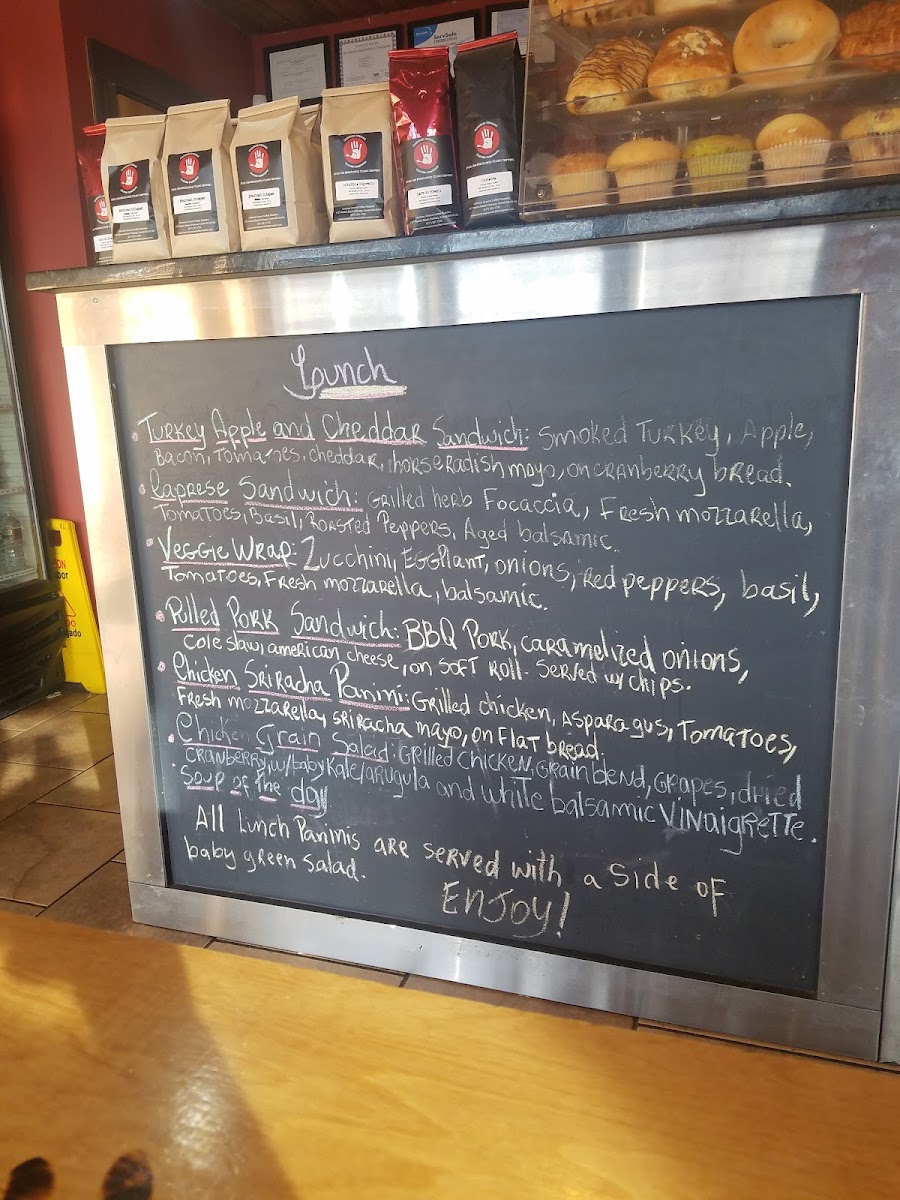 ServSafe
Lunch
Turkey Apple and Cheddar Sandwich: Smoked Turkey, Apple,
Bacon, Tomatoes, cheddar, horseradish mayo, on cranberry bread.
Caprese Sandwich: Grilled herb Focaccia, Fresh mozzarella,
Tomatoes, Basil, Roasted Peppers, Aged balsamic.
Veggie Wrap: Zucchini, Eggplant, onions, red peppers, basil,
Tomatoes, Fresh mozzarella, balsamic.
Pulled Pork Sandwich: BBQ Pork, caramelized onions,
Cole slaw, american cheese, on soft roll. Served w/ chips.
Chicken Sriracha Panini: Grilled chicken, Asparagus, Tomatoes,
Fresh mozzarella, sriracha mayo, on flat bread.
Chicken Grain Salad: Grilled chicken, Grain blend, Grapes, dried
cranberry, w/ baby kale/arugula and white balsamic Vinaigrette.
Soup of the day
All Lunch Paninis are served with a side of
baby green salad.
ENJOY!